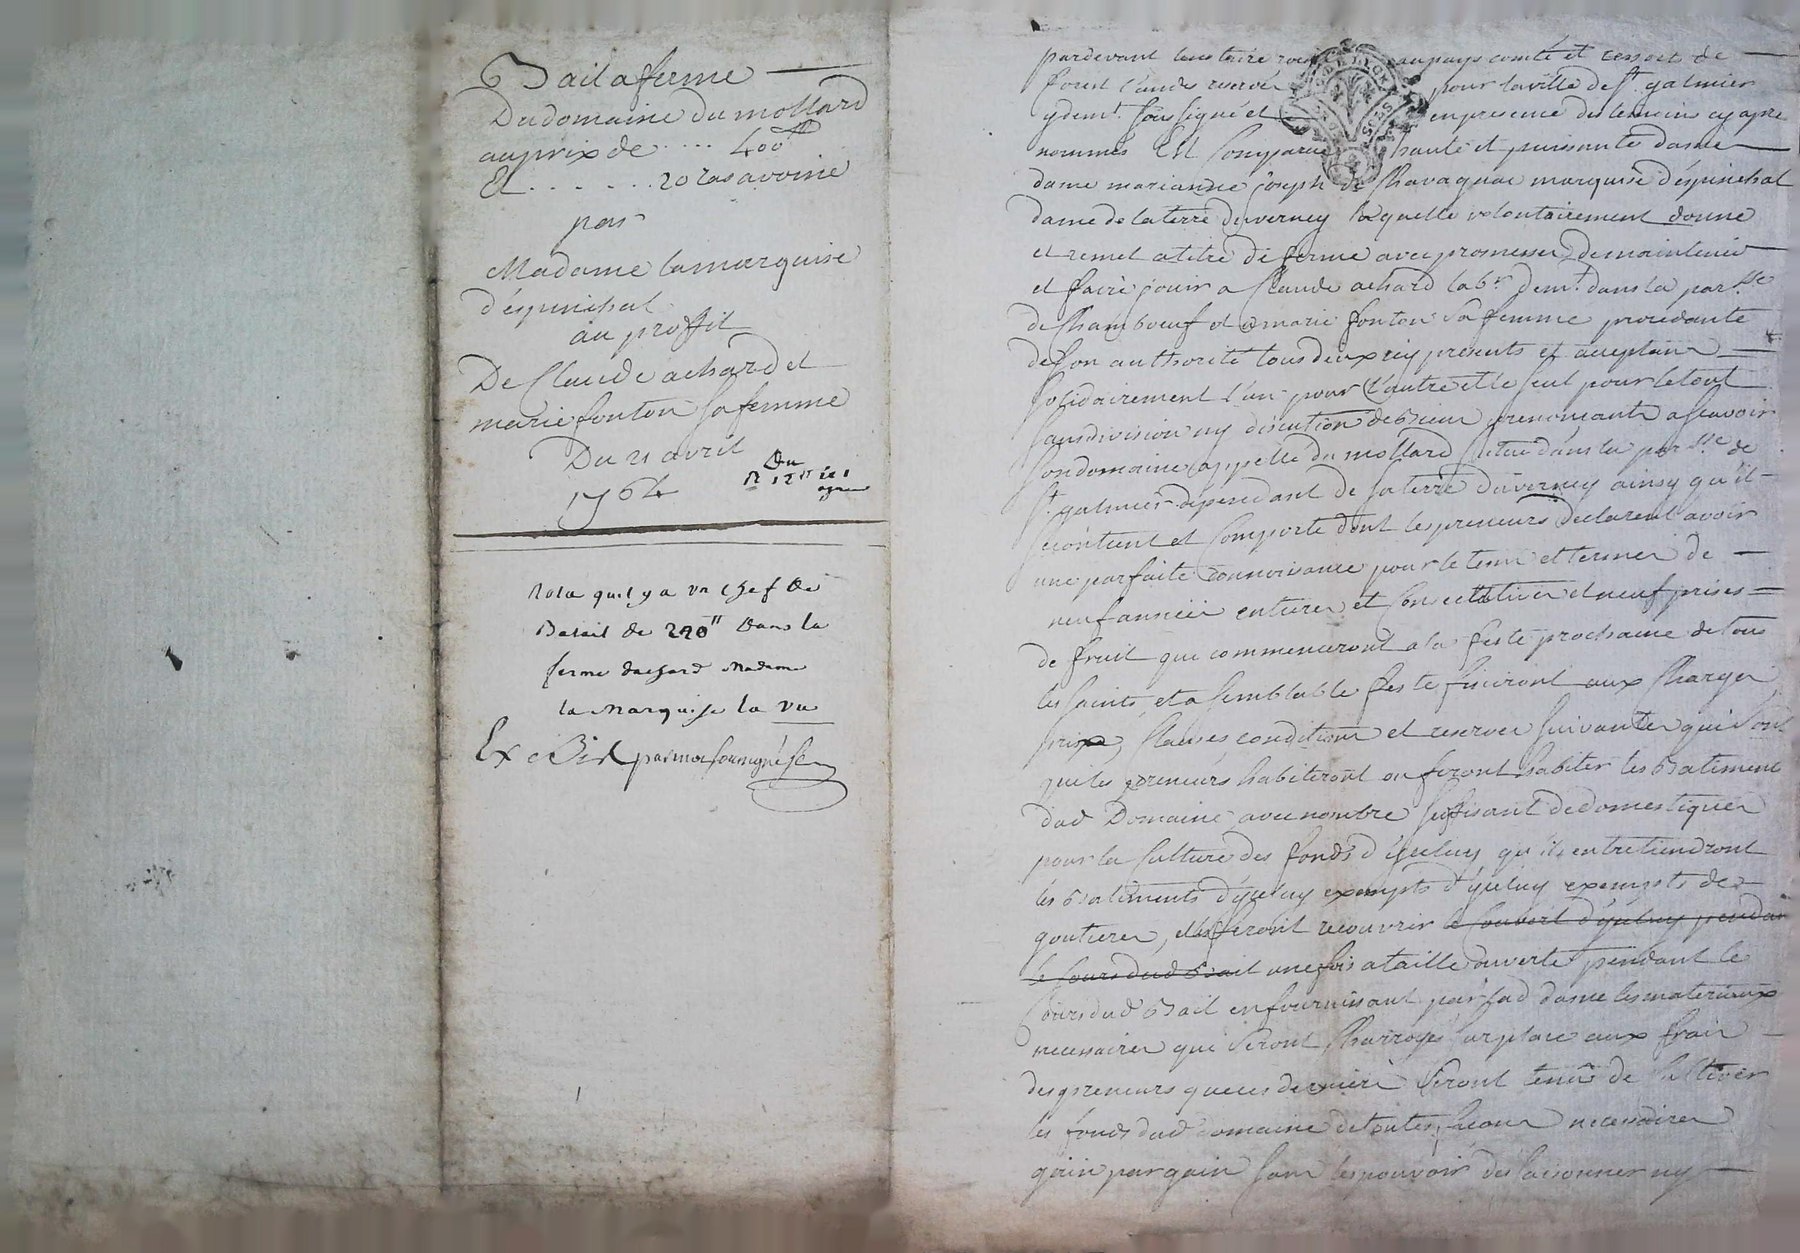 Bail a ferme
Du domaine du mollard
au prix de .... 400#
Et . . . . . . 20 ras avoine
par
Madame la marquise
d'éspinchal
au proffit
De Claude achard et
marie fonton sa femme
Du 21 avril
1764
Du
nota quil y a vn chef De
Betail de 220" Dans la
ferme dachard Madame
la Marquise la vu
par moi soussigné
pardevant le notaire royal au pays comté et ressort de
forest l'un des reservés pour la ville de st galmier
y demt. soussigné et en presence des temoins cy apre
nommés Est Comparue haute et puissante dame
dame marianne joseph de Chavagnac marquise d'éspinchal
dame de la terre du verney laquelle volontairement donne
et remet a titre de ferme avec promesse de maintenir
et faire jouir a Claude achard labr. demt. dans la parsse
de Chambœuf et a marie fonton sa femme procedante
de son authorité tous deux icy presents et acceptans
solidairement l'un pour l'autre et le seul pour le tout
sans division ny discution de bien y renonçants a scavoir
son domaine appellé du mollard situé dans la parsse de
st. galmier dépendant de sa terre du verney ainsy qu'il
se contient et Comporte dont les preneurs declarent avoir
une parfaite connoissance pour le tems et termes de
neuf années entieres et Consecutives et neuf prises
de fruit qui commenceront a la feste prochaine de tous
les saints et a semblable feste finiront aux Charges
prix, Clauses conditions et reserves suivantes qui sont
que les preneurs habiteront ou feront habiter les batiments
dud Domaine avec nombre suffisant de domestiques
pour la Culture des fonds d'yceluy qu'ils entretiendront
les batiments d'yceluy exempts d'yceluy exempts de
goutieres, et feront recouvrir le Couvert d'yceluy pendant
le Cours dud bail une fois a taille ouverte pendant le
Cours dud bail en fournissant par lad dame les materiaux
necessaires qui seront Charroyés sur place aux frais
des preneurs que ces derniers seront tenus de Cultiver
les fonds dud domaine de toutes facons necessaires
gain par gain sans les pouvoir dessaisonner ny